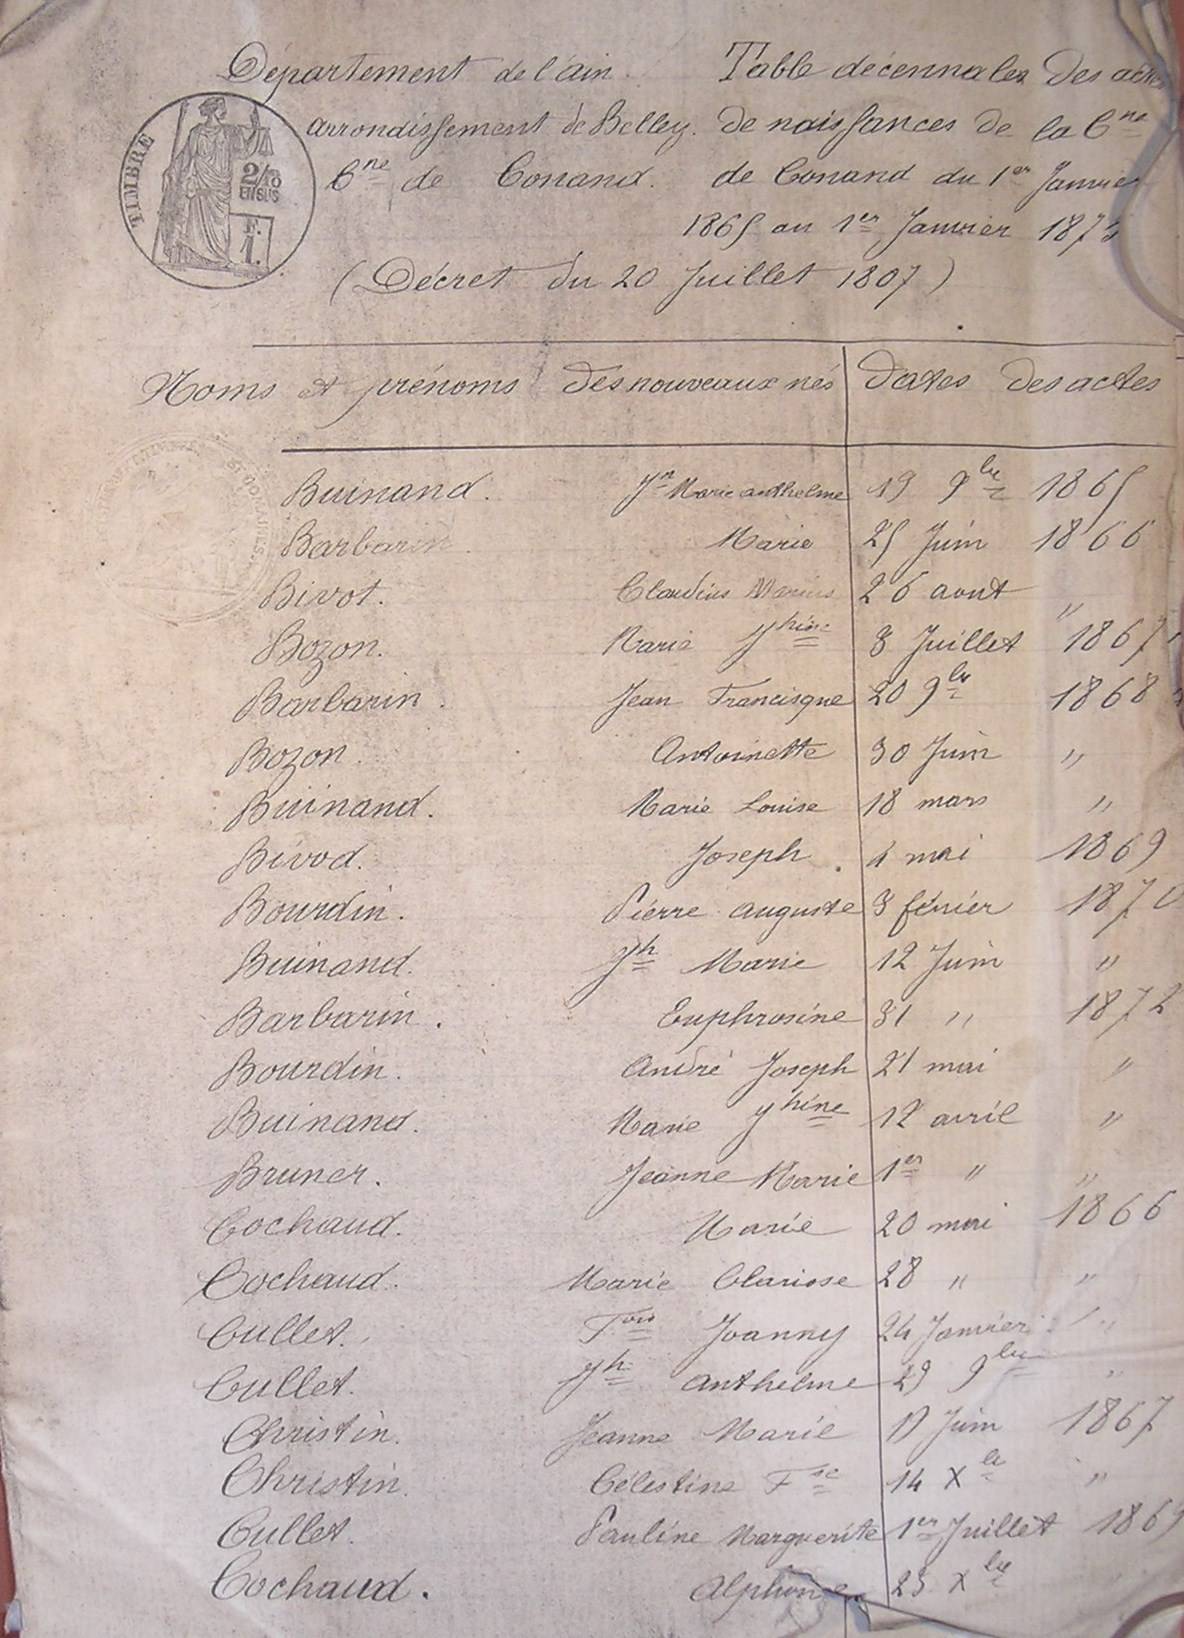 Département de l'ain. Table décennales des actes
arrondissement de Belley. de naissances de la Cne
Cne de Conand. de Conand du 1er Janvier
1865 au 1er Janvier 1873
(Décret du 20 Juillet 1807)
TIMBRE
2/10
EN SUS
Noms et prénoms des nouveaux nés dates des actes
Buinand. Jn Marie anthelme 19 9bre 1865
Barbarin. Marie 25 Juin 1866
Bivot. Claudius Marius 26 aout "
Bozon. Marie Jhine 8 Juillet 1867
Barbarin. Jean Francisque 20 9bre 1868
Bozon Antoinette 30 Juin "
Buinand. Marie Louise 18 mars "
Bivod. Joseph. 4 mai 1869
Bourdin. Pierre auguste 3 février 1870
Buinand. Jh Marie 12 Juin "
Barbarin. Euphrosine 31 " 1872
Bourdin. André Joseph 21 mai "
Buinand. Marie Jhine 12 avril "
Bruner. Jeanne Marie 1er " "
Cochaud. Marie 20 mai 1866
Cochaud. Marie Clarisse 28 " "
Cullet. Fois Joanny 24 Janvier "
Cullet. Jh anthelme 29 9bre "
Christin. Jeanne Marie Juin 1867
Christin. Célestine Fse 14 Xbre "
Cullet. Pauline Marguerite 1er Juillet 1869
Cochaud. Alphonse 25 Xbre